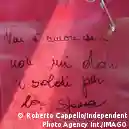 non mi dai
i soldi per
la spesa
© Roberto Cappello/Independent
Photo Agency Int./IMAGO